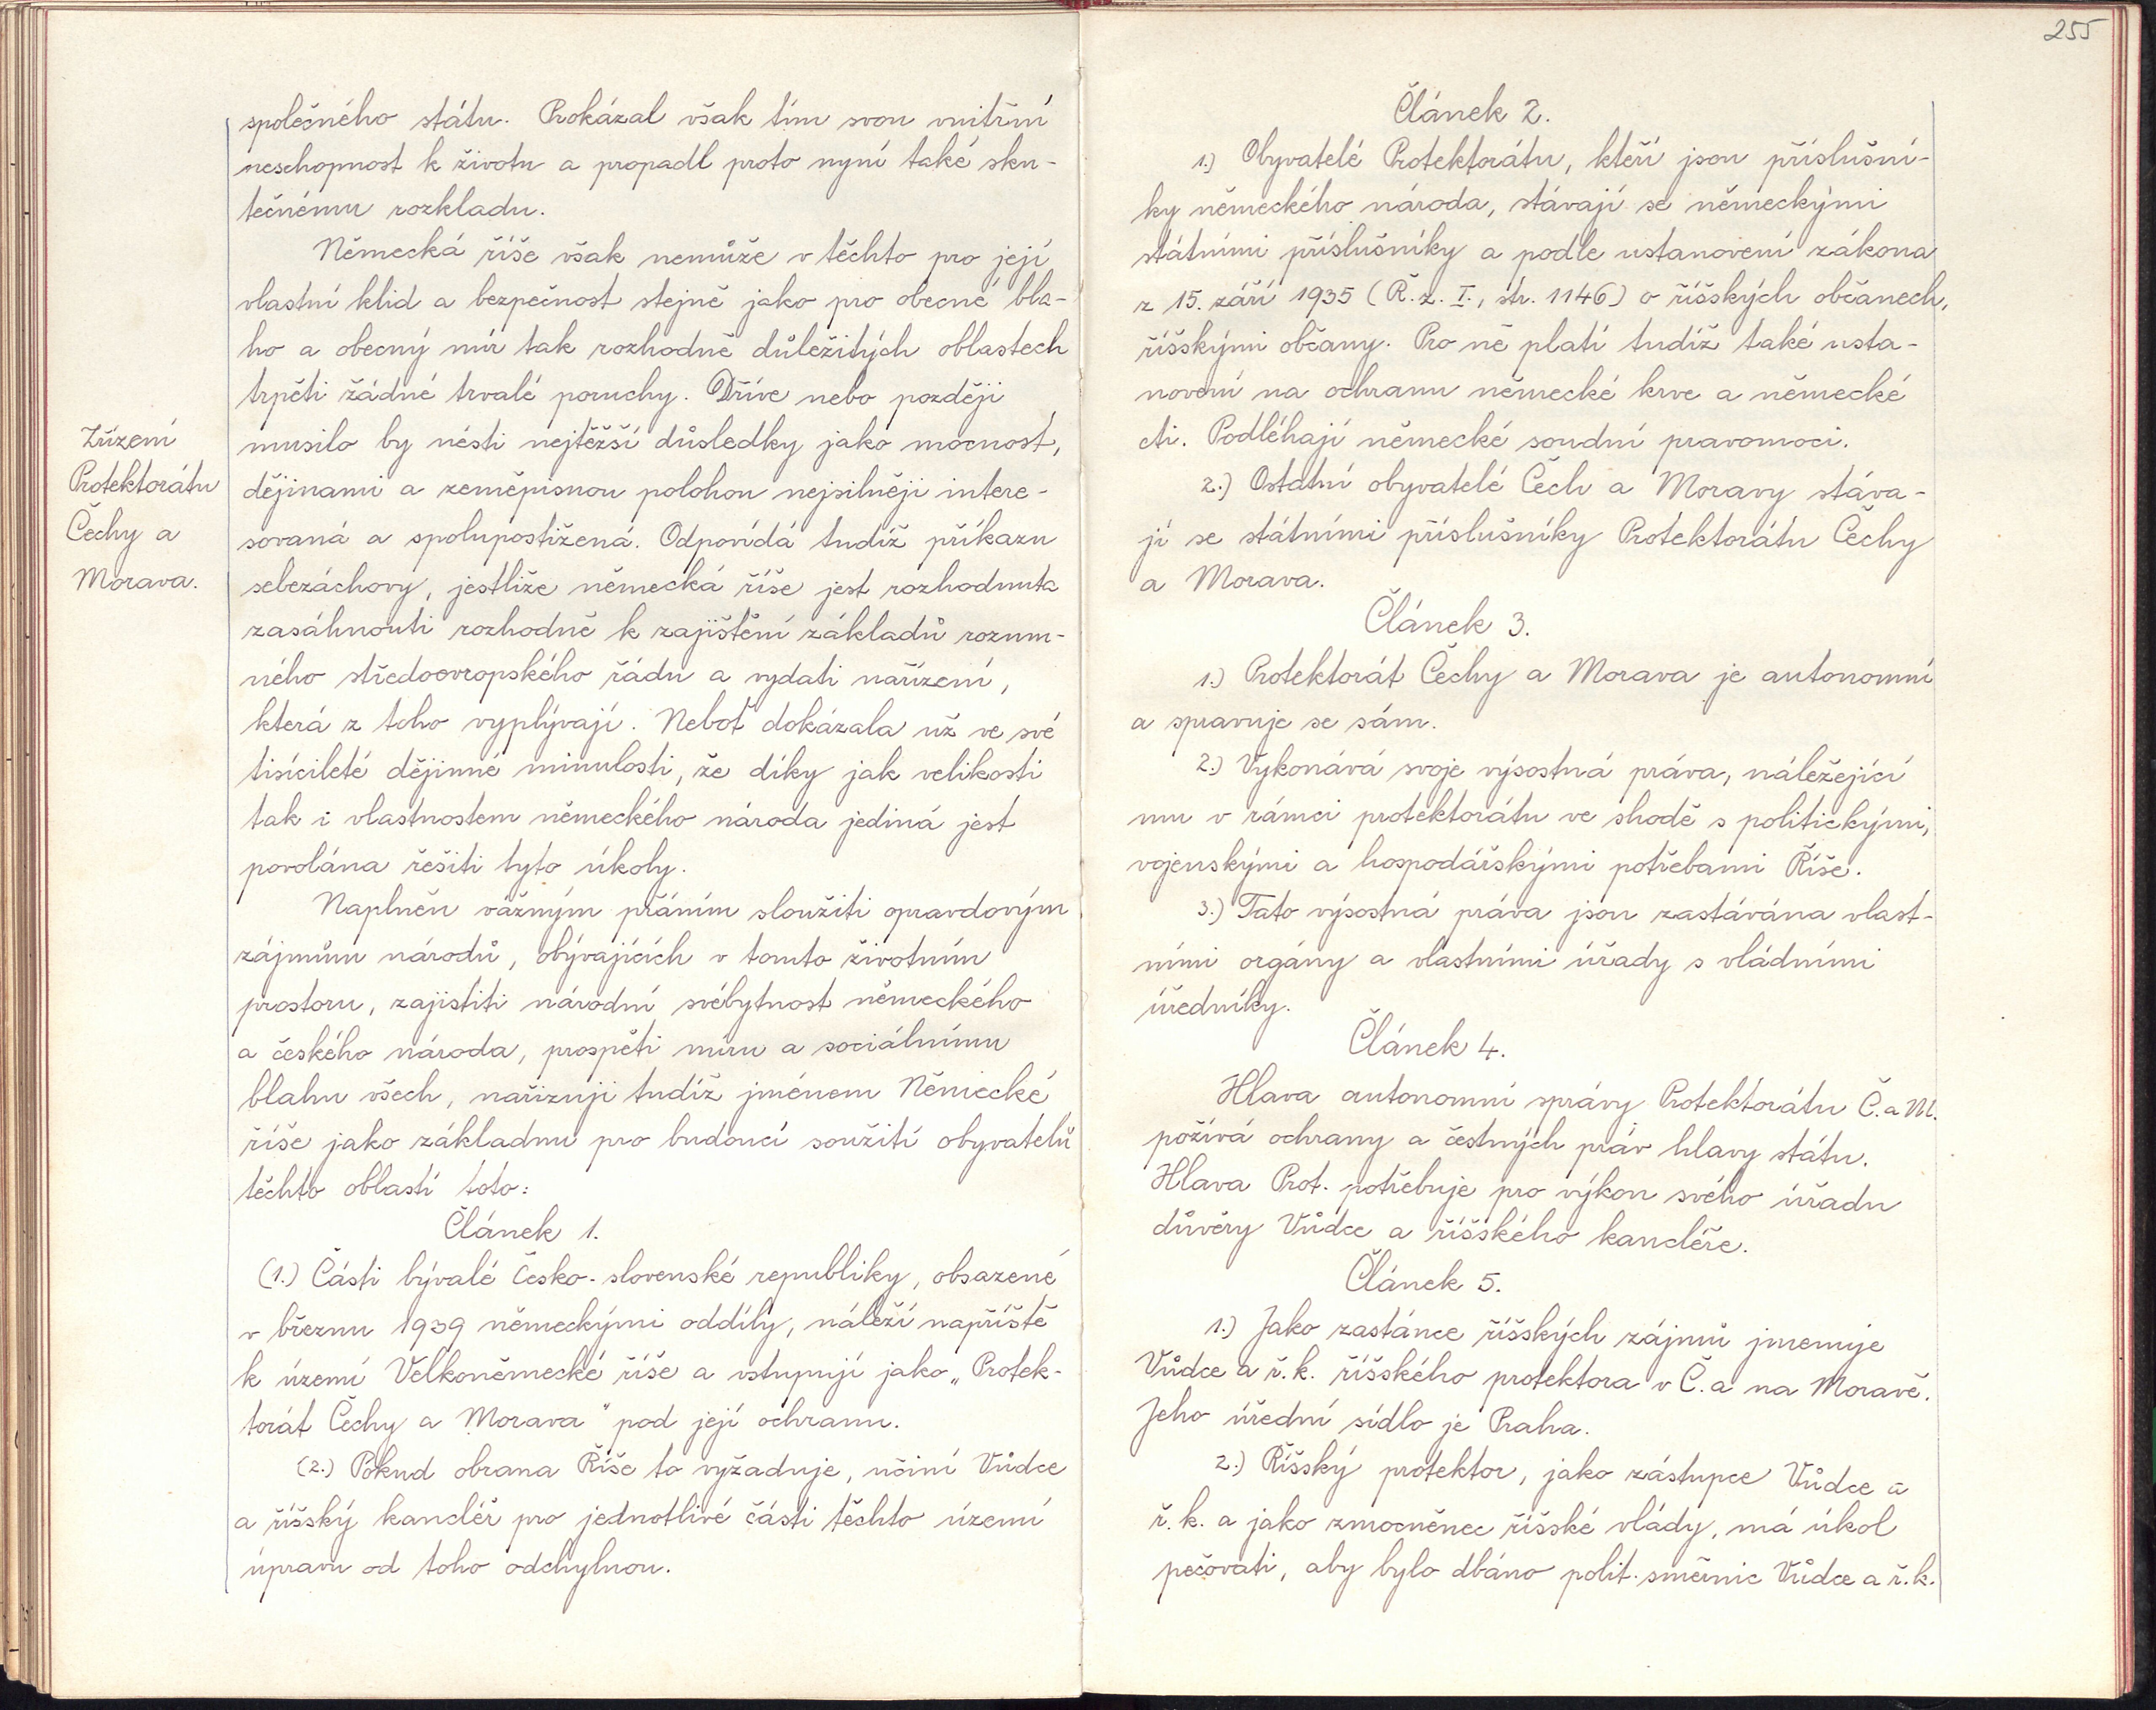 společného státu. Prokázal však tím svou vnitřní
neschopnost k životu a propadl proto nyní také sku-
tečnému rozkladu.
Německá říše však nemůže v těchto pro její
vlastní klid a bezpečnost stejně jako pro obecné bla-
ho a obecný mír tak rozhodně důležitých oblastech
trpěti žádné trvalé poruchy. Dříve nebo později
musilo by nésti nejtěžší důsledky jako mocnost,
dějinami a zeměpisnou polohou nejsilněji intere-
sovaná a spolupostižená. Odpovídá tudíž příkazu
sebezáchovy, jestliže německá říše jest rozhodnuta
zasáhnouti rozhodně k zajištění základů rozum-
ného středoevropského řádu a vydati nařízení,
která z toho vyplývají. Neboť dokázala už ve své
tisícileté dějinné minulosti, že díky jak velikosti
tak i vlastnostem německého národa jediná jest
povolána řešiti tyto úkoly.
Naplněn vážným přáním sloužiti opravdovým
zájmům národů, obývajících v tomto životním
prostoru, zajistiti národní svébytnost německého
a českého národa, prospěti míru a sociálnímu
blahu všech, nařizuji tudíž jménem Německé
říše jako základnu pro budoucí soužití obyvatelů
těchto oblastí toto:
Článek 1.
(1.) Části bývalé Česko-slovenské republiky, obsazené
v březnu 1939 německými oddíly, náleží napříště
k území Velkoněmecké říše a vstupují jako „Protek-
torát Čechy a Morava" pod její ochranu.
(2.) Pokud obrana Říše to vyžaduje, učiní Vůdce
a říšský kancléř pro jednotlivé části těchto území
úpravu od toho odchylnou.
Zřízení
Protektorátu
Čechy a
Morava.
255
Článek 2.
1.) Obyvatelé Protektorátu, kteří jsou příslušní-
ky německého národa, stávají se německými
státními příslušníky a podle ustanovení zákona
z 15. září 1935 (Ř. z. I., str. 1146) o říšských občanech,
říšskými občany. Pro ně platí tudíž také usta-
novení na ochranu německé krve a německé
cti. Podléhají německé soudní pravomoci.
2.) Ostatní obyvatelé Čech a Moravy stáva-
jí se státními příslušníky Protektorátu Čechy
a Morava.
Článek 3.
1.) Protektorát Čechy a Morava je autonomní
a spravuje se sám.
2.) Vykonává svoje výsostná práva, náležející
mu v rámci protektorátu ve shodě s politickými,
vojenskými a hospodářskými potřebami Říše.
3.) Tato výsostná práva jsou zastávána vlast-
ními orgány a vlastními úřady s vládními
úředníky.
Článek 4.
Hlava autonomní správy Protektorátu Č. a M.
požívá ochrany a čestných práv hlavy státu.
Hlava Prot. potřebuje pro výkon svého úřadu
důvěry Vůdce a říšského kancléře.
Článek 5.
1.) Jako zastánce říšských zájmů jmenuje
Vůdce a ř. k. říšského protektora v Č. a na Moravě.
Jeho úřední sídlo je Praha.
2.) Říšský protektor, jako zástupce Vůdce a
ř. k. a jako zmocněnec říšské vlády, má úkol
pečovati, aby bylo dbáno polit. směrnic Vůdce a ř. k.